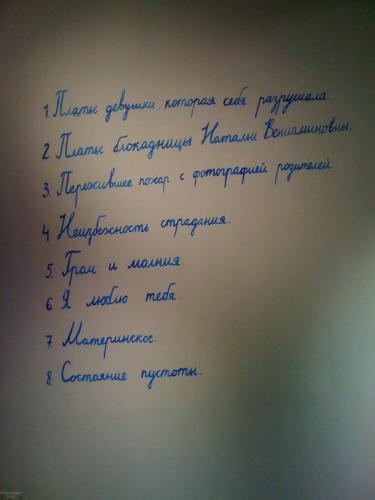 1. Платье девушки, которая себя разрушала.
2. Платье блокадницы Натальи Вениаминовны.
3. Пережившее пожар с фотографией родителей.
4. Неизбежность страдания.
5. Гром и молния.
6. Я люблю тебя.
7. Материнское.
8. Состояние пустоты.